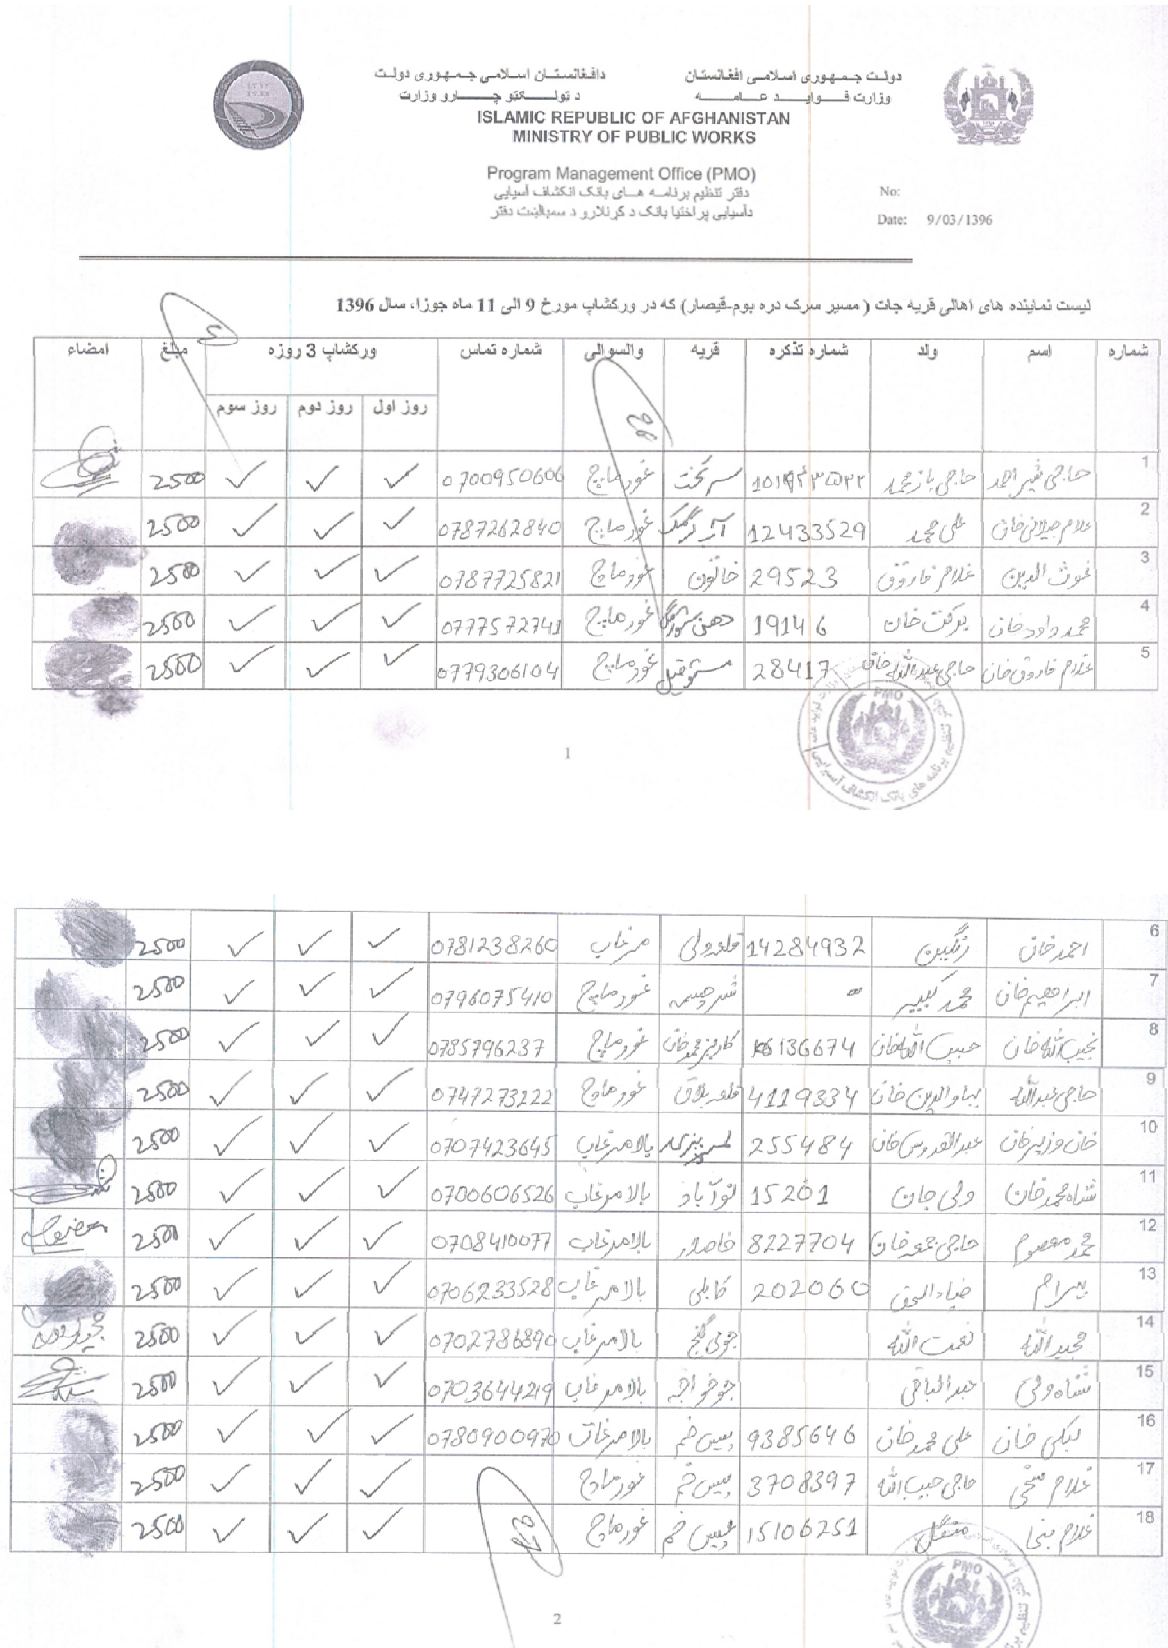 دولت جمهوری اسلامی افغانستان
وزارت فواید عامه
دافغانستان اسلامی جمهوری دولت
د تولگتو چارو وزارت
ISLAMIC REPUBLIC OF AFGHANISTAN
MINISTRY OF PUBLIC WORKS
Program Management Office (PMO)
دفتر تنظیم برنامه های بانک انکشاف آسیایی
دآسیایی پراختیا بانک د کړنلارو د سمبالښت دفتر
No:
Date: 9/03/1396
لیست نماینده های اهالی قریه جات ( مسیر سرک دره بوم-قیصار) که در ورکشاپ مورخ 9 الی 11 ماه جوزا، سال 1396
شماره اسم ولد شماره تذکره قریه والسوالی شماره تماس ورکشاپ 3 روزه مبلغ امضاء
روز اول روز دوم روز سوم
1 حاجی شیراحمد حاجی بازمحمد سرتخت غورماچ 0700950606 ✓ ✓ ✓ 2500
2 غلام جیلانی خان علی محمد 12433529 غورماچ 0787262840 ✓ ✓ ✓ 2500
3 غوث الدین غلام فاروق 29523 خاتون غورماچ 0787725821 ✓ ✓ ✓ 2500
4 محمد داود خان برکت خان 19146 غورماچ 0777572741 ✓ ✓ ✓ 2500
5 غلام فاروق خان حاجی عبدالله خان 28417 غورماچ 0779306104 ✓ ✓ ✓ 2500
PMO
1
6 احمد خان رنگین 14284932 مرغاب 0781238260 ✓ ✓ ✓ 2500
7 ابراهیم خان محمد کبیر - غورماچ 0796075410 ✓ ✓ ✓ 2500
8 نجیب الله خان حبیب الله خان 136674 کاریز محمد خان غورماچ 0785796237 ✓ ✓ ✓ 2500
9 حاجی عبدالله بهاوالدین خان 4119334 غورماچ 0747273222 ✓ ✓ ✓ 2500
10 خان وزیر خان عبدالقدوس خان 255484 بالامرغاب 0707423645 ✓ ✓ ✓ 2500
11 شاه محمد خان ولی جان 15201 نوآباد بالامرغاب 0700606526 ✓ ✓ ✓ 2500
12 محمد معصوم 8227704 بالامرغاب 0708410077 ✓ ✓ ✓ 2500
13 بهرام ضیاءالحق 202060 کابلی بالامرغاب 0706233528 ✓ ✓ ✓ 2500
14 مجید الله نعمت الله جوی گنج بالامرغاب 0702786890 ✓ ✓ ✓ 2500
15 شاه ولی عبدالباقی جو خواجه بالامرغاب 0703644219 ✓ ✓ ✓ 2500
16 علی محمد خان 9385646 بالامرغاب 0780900970 ✓ ✓ ✓ 2500
17 غلام سخی حاجی حبیب الله 3708397 غورماچ ✓ ✓ ✓ 2500
18 منگل 15106251 غورماچ ✓ ✓ ✓ 2500
PMO
2